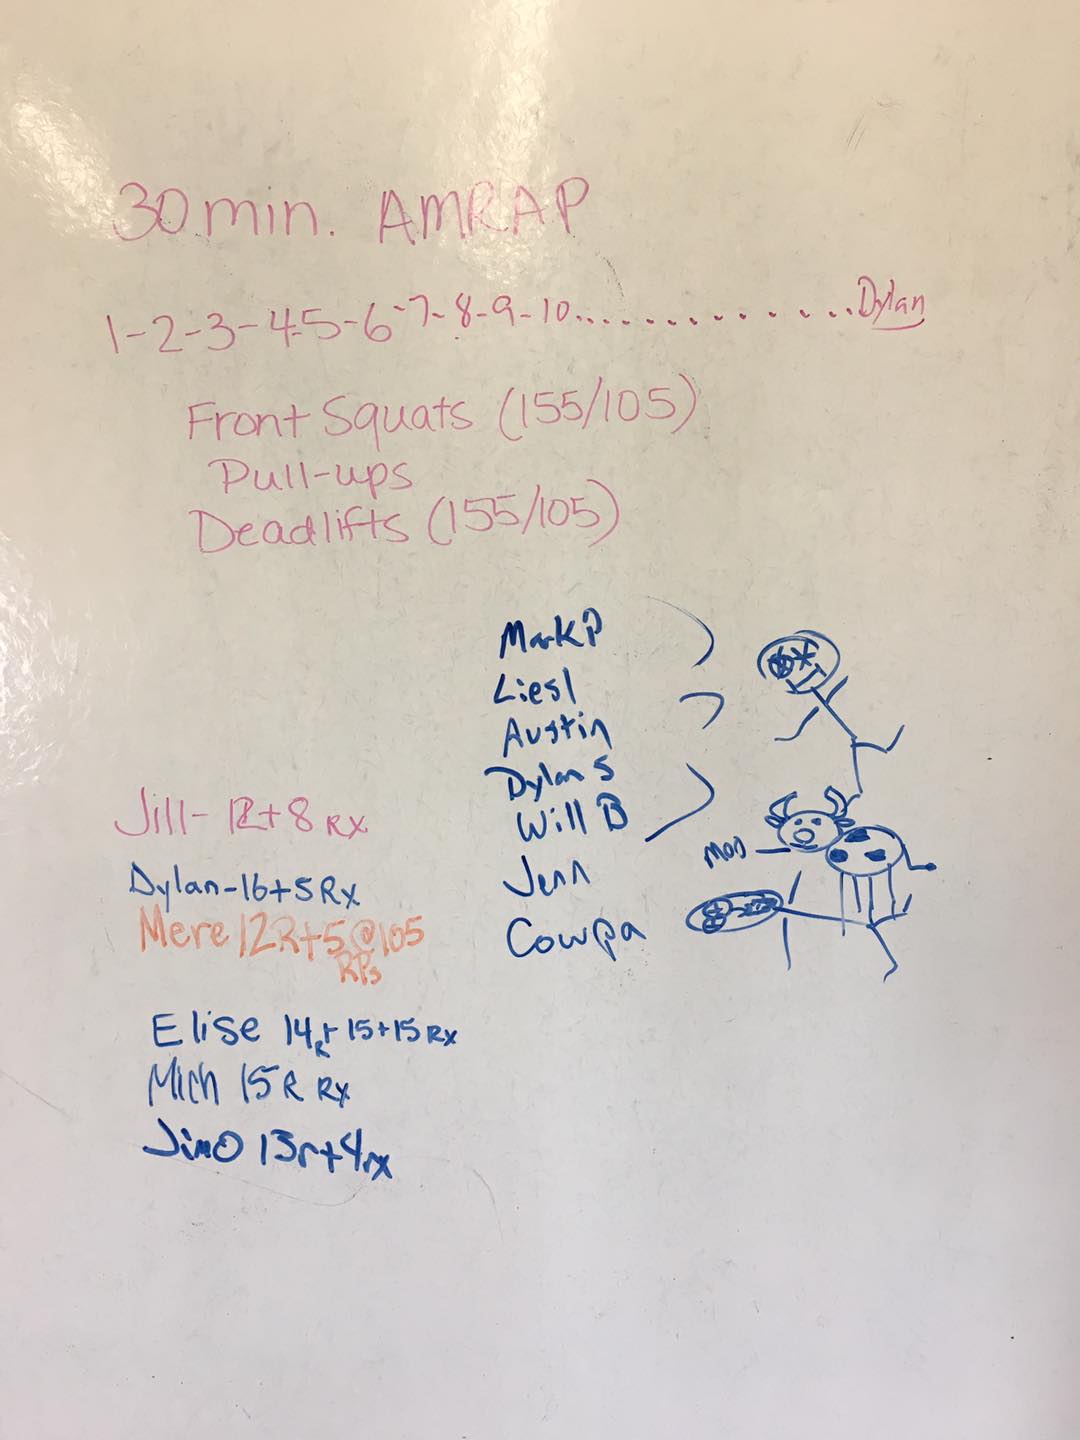 30 min. AMRAP
1-2-3-4-5-6-7-8-9-10..............Dylan
Front Squats (155/105)
Pull-ups
Deadlifts (155/105)
Mark P
Liesl
Austin
Dylan S
Will B
Jenn
Cowpa
moo
Jill- 12+8 RX
Dylan-16+5 Rx
Mere 12R+5@105
RPs
Elise 14R+15+15 Rx
Mich 15R Rx
JimO 13r+4rx